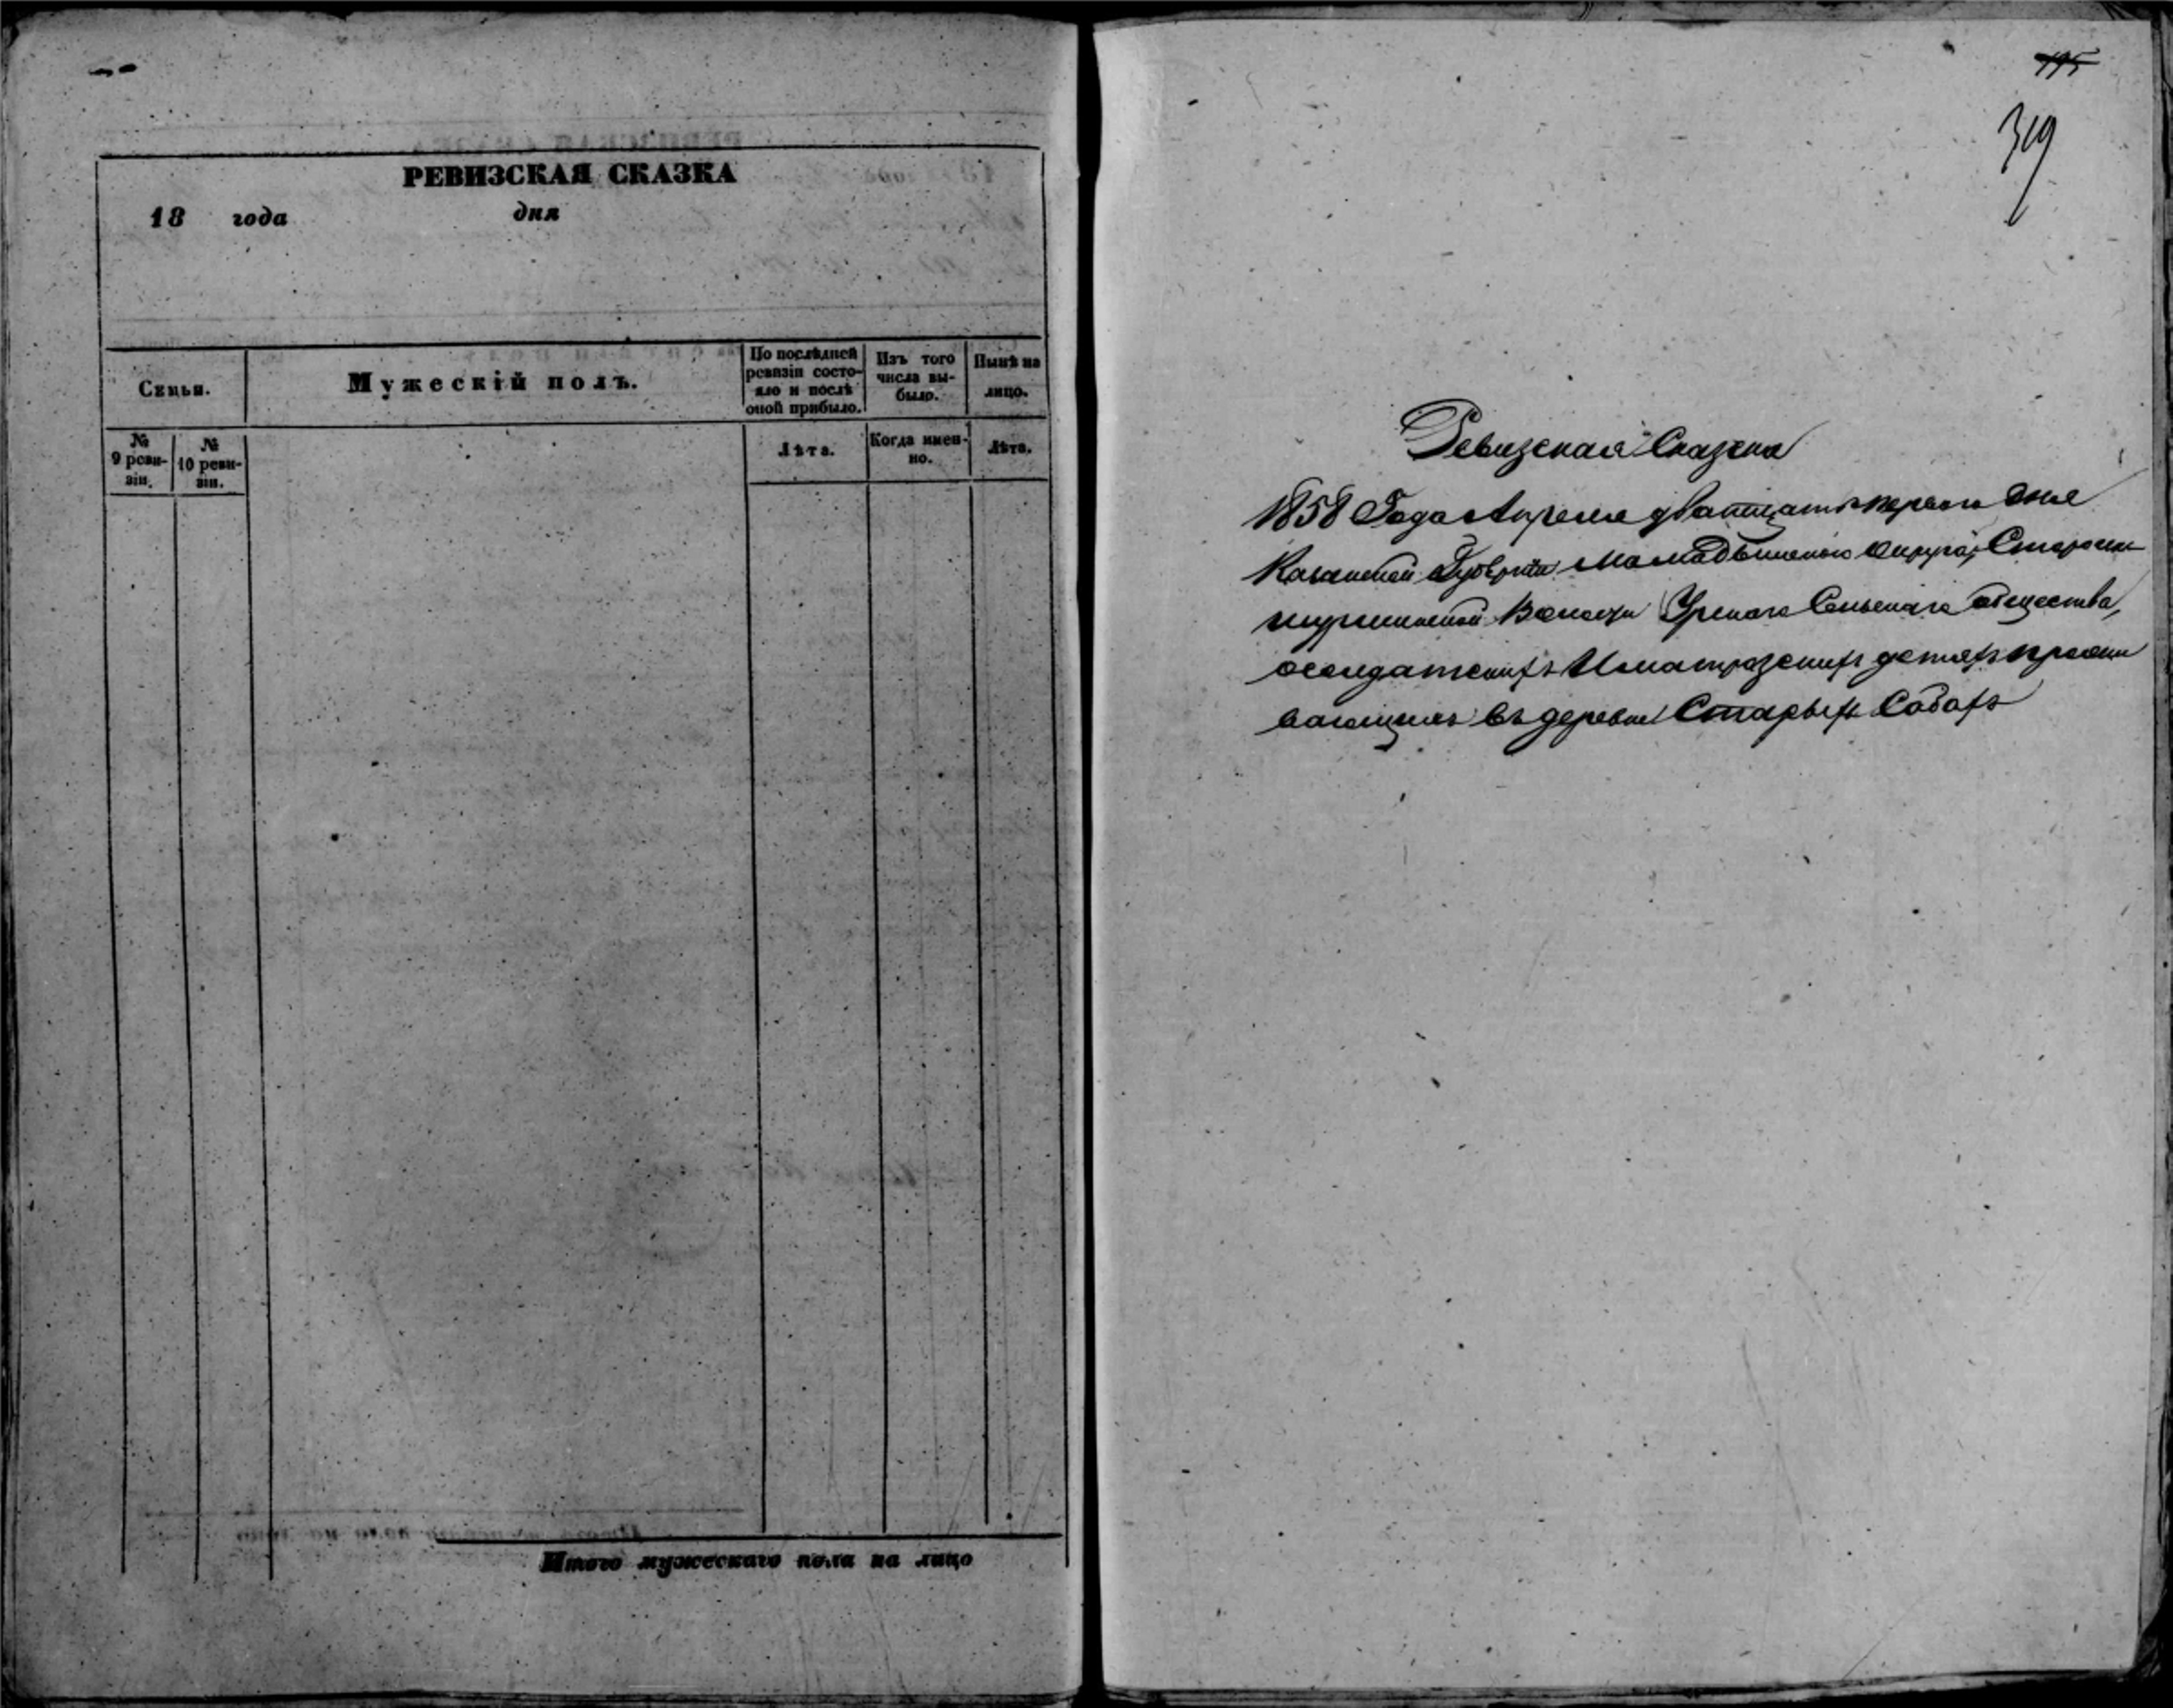 РЕВИЗСКАЯ СКАЗКА
18 года дня
Семьи.
Мужескій полъ.
По послѣдней ревизіи состо-
яло и послѣ
оной прибыло.
Изъ того
числа вы-
было.
Нынѣ на
лицо.
№
9 реви-
зіи.
№
10 реви-
зіи.
Лѣта.
Когда имен-
но.
Лѣта.
Итого мужескаго пола на лицо
195
319
Ревизская Сказка
1858 Года Апреля дватцать перваго дня
Казанской Губерніи Мамадышскаго Округа, Староки
нурминской Волости Сельскаго общества,
осолдатскихъ Иматрозскихъ детяхъ прожи
вающихъ въ деревне Старыхъ Сабахъ